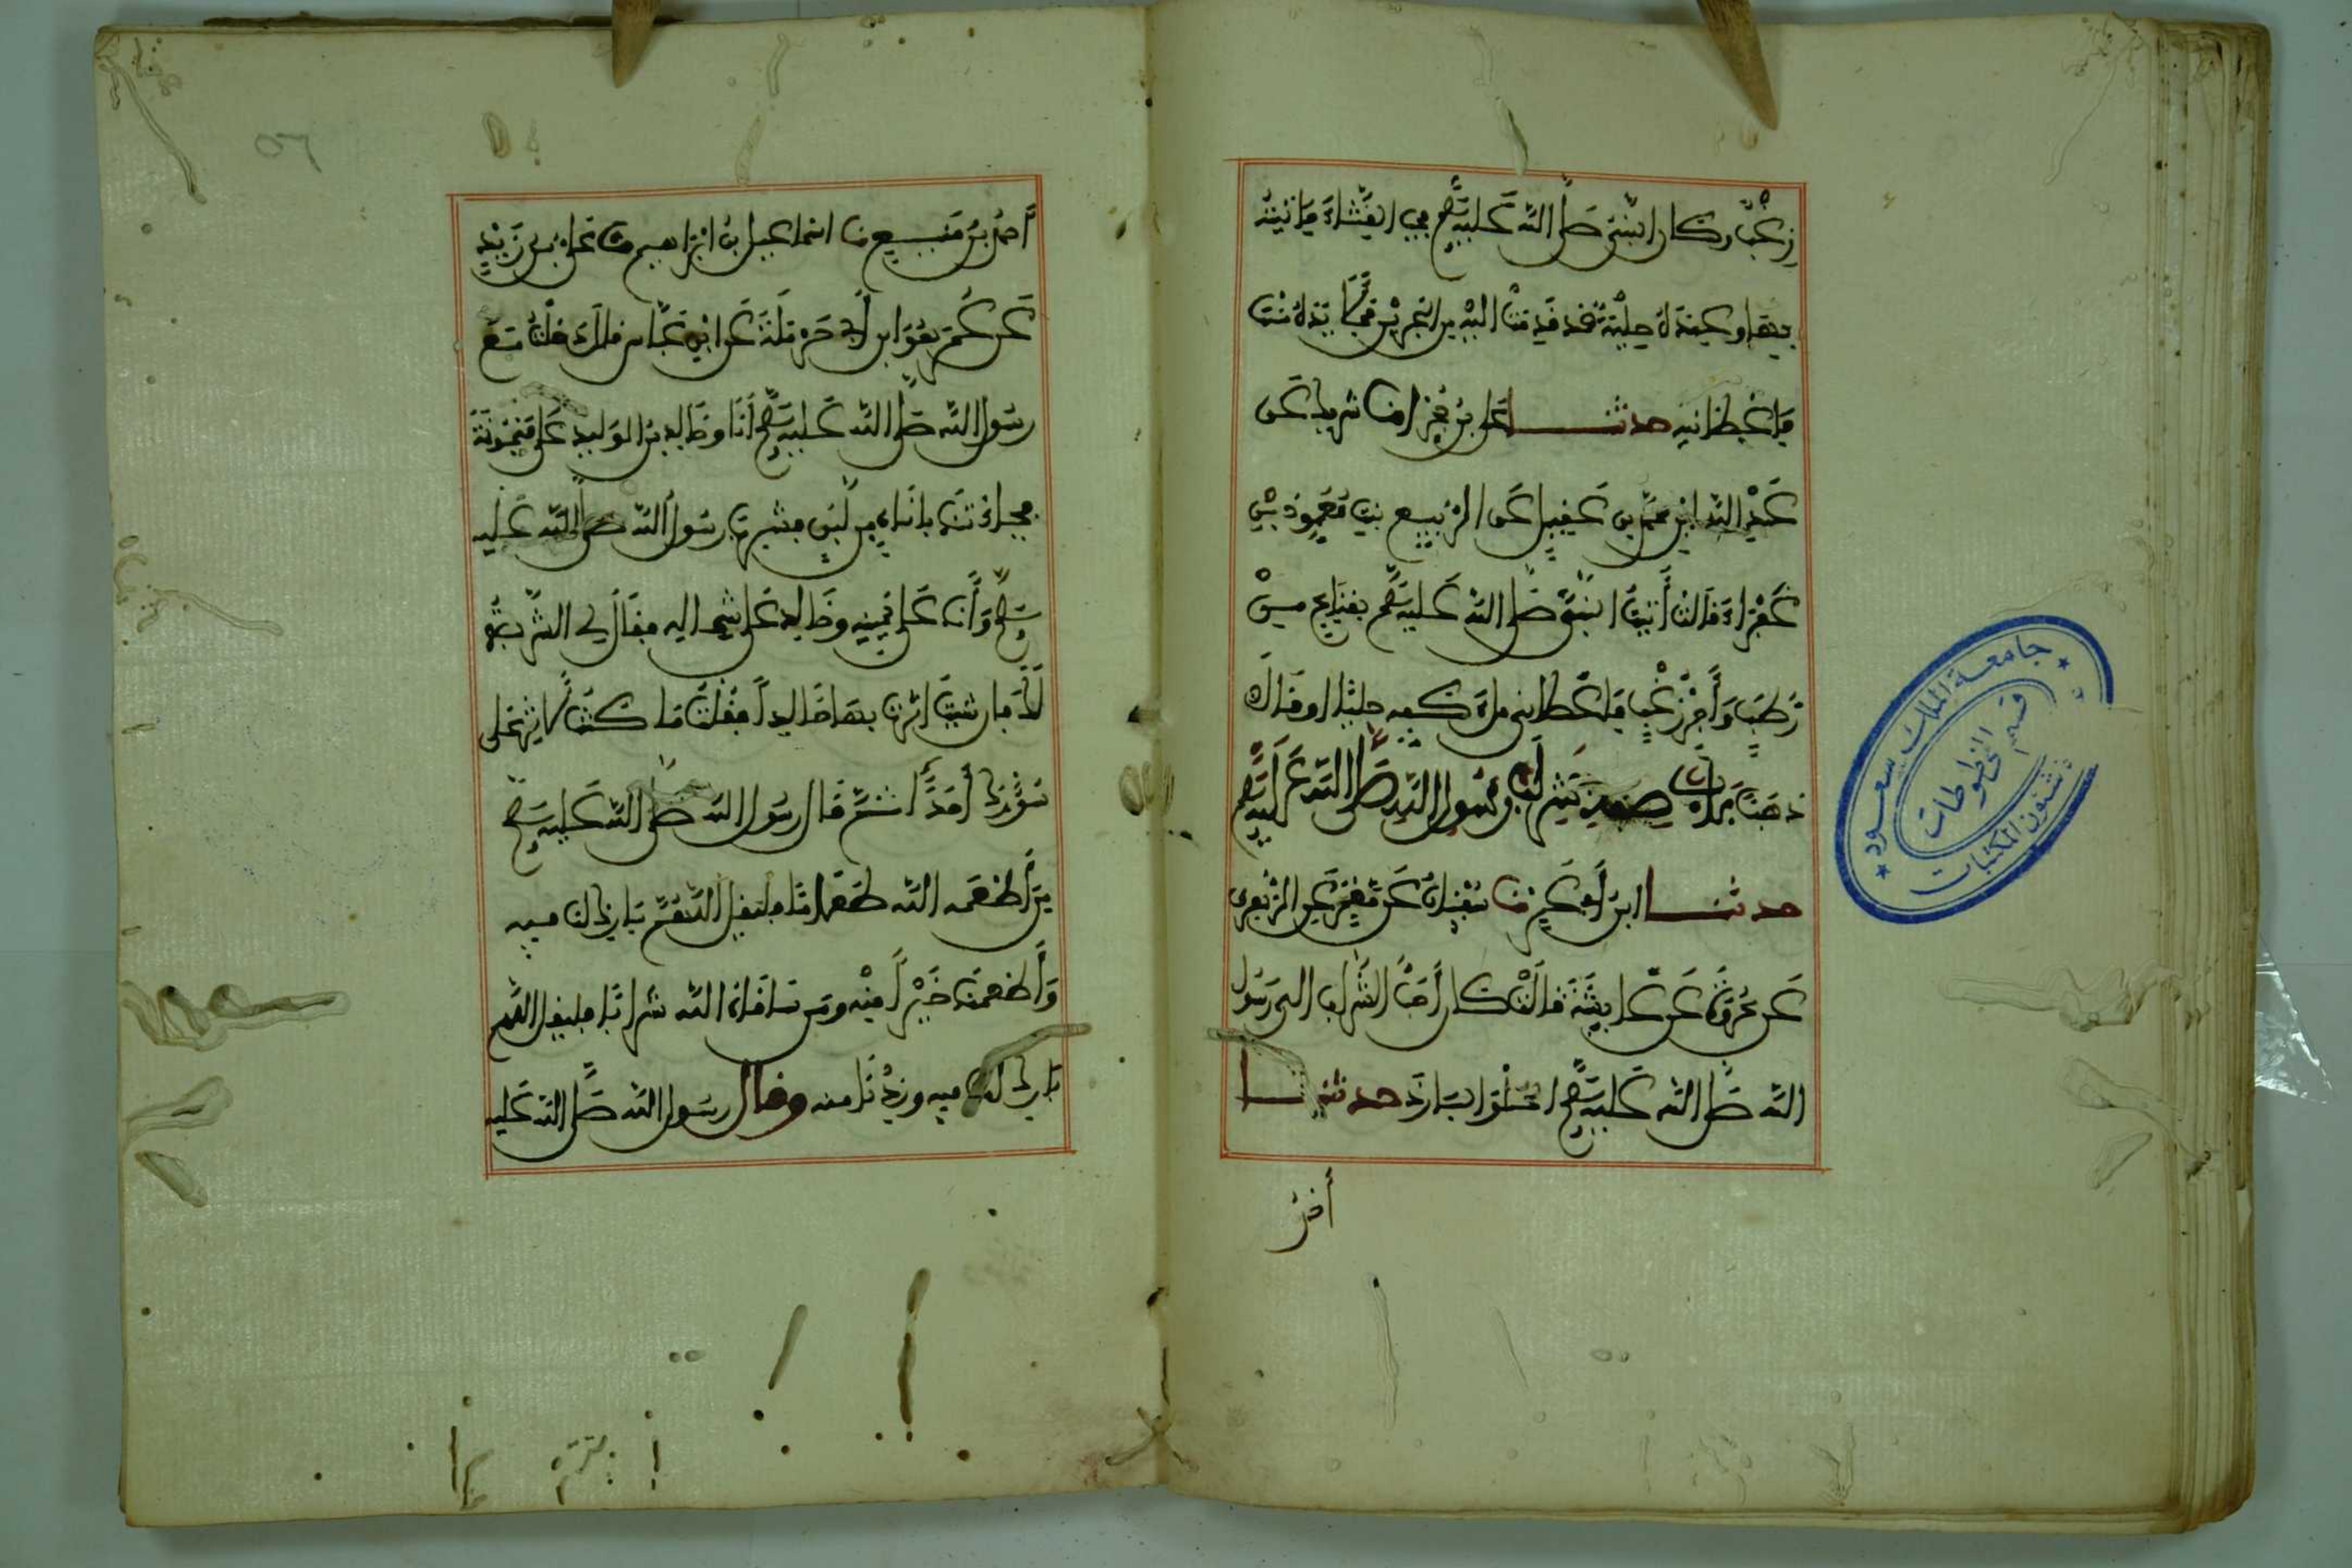 زغب وكان النبي صلى الله عليه وسلم يحب القثاء فأتيته
بها وعنده حلية قد قدمت إليه من البحرين فملأ يده منها
فأعطانيه حدثنا علي بن حجر انا شريك عن
عبد الله ابن محمد بن عقيل عن الربيع بنت معوذ بن
عفراء قالت أتيت النبي صلى الله عليه وسلم بقناع من
رطب وأجر زغب فأعطاني ملء كفه حليا او قالت
ذهبا باب صفة شراب رسول الله صلى الله عليه وسلم
حدثنا ابن أبي عمر نا سفيان عن معمر عن الزهري
عن عروة عن عايشة قالت كان أحب الشراب الى رسول
الله صلى الله عليه وسلم الحلو البارد حدثنا
أحمد
أحمد بن منيع نا اسماعيل بن ابراهيم نا علي بن زيد
عن عمر هو ابن أبي حرملة عن ابن عباس قال دخلت مع
رسول الله صلى الله عليه وسلم أنا وخالد بن الوليد على ميمونة
فجاءتنا بإناء من لبن فشرب رسول الله صلى الله عليه
وسلم وأنا على يمينه وخالد على شماله فقال لي الشربة
لك فإن شئت اثرت بها خالدا فقلت ما كنت لأوثر على
سؤرك أحدا ثم قال رسول الله صلى الله عليه وسلم
من أطعمه الله طعاما فليقل اللهم بارك لنا فيه
وأطعمنا خيرا منه ومن سقاه الله شرابا فليقل اللهم
بارك لنا فيه وزدنا منه وقال رسول الله صلى الله عليه
٥٦
جامعة الملك سعود
قسم المخطوطات
شئون المكتبات